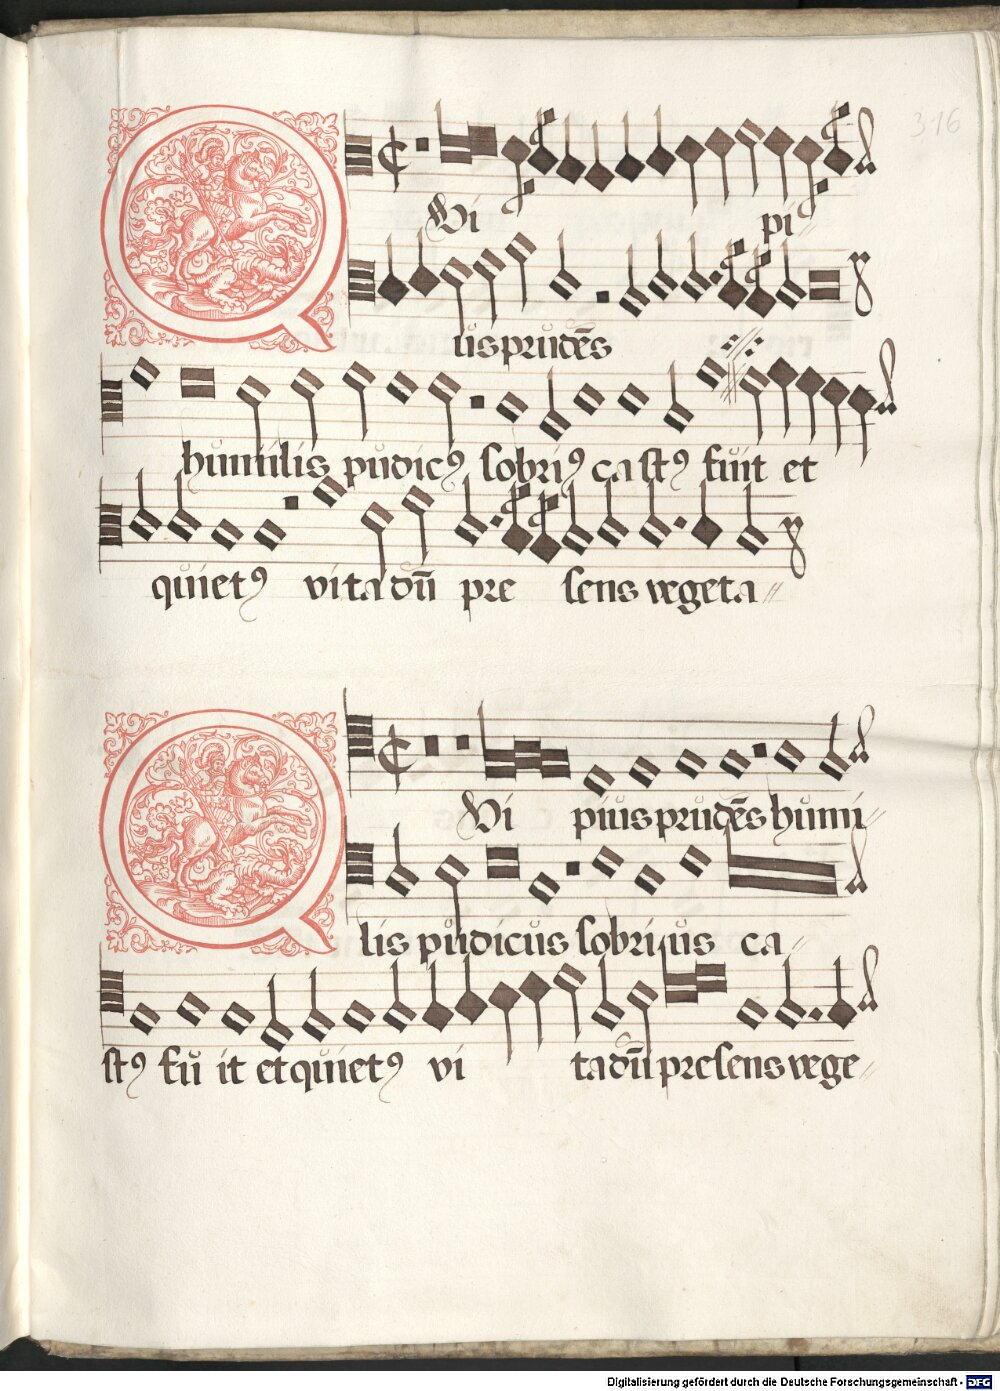 316
QVi pi
us prudēs
humilis pudicꝰ sobriꝰ castꝰ fuit et
quietꝰ vita dū pre sens vegeta //
QVi pius prudēs humi //
lis pudicus sobrius ca //
stꝰ fu it et quietꝰ vi ta dū presens vege //
Digitalisierung gefördert durch die Deutsche Forschungsgemeinschaft - DFG